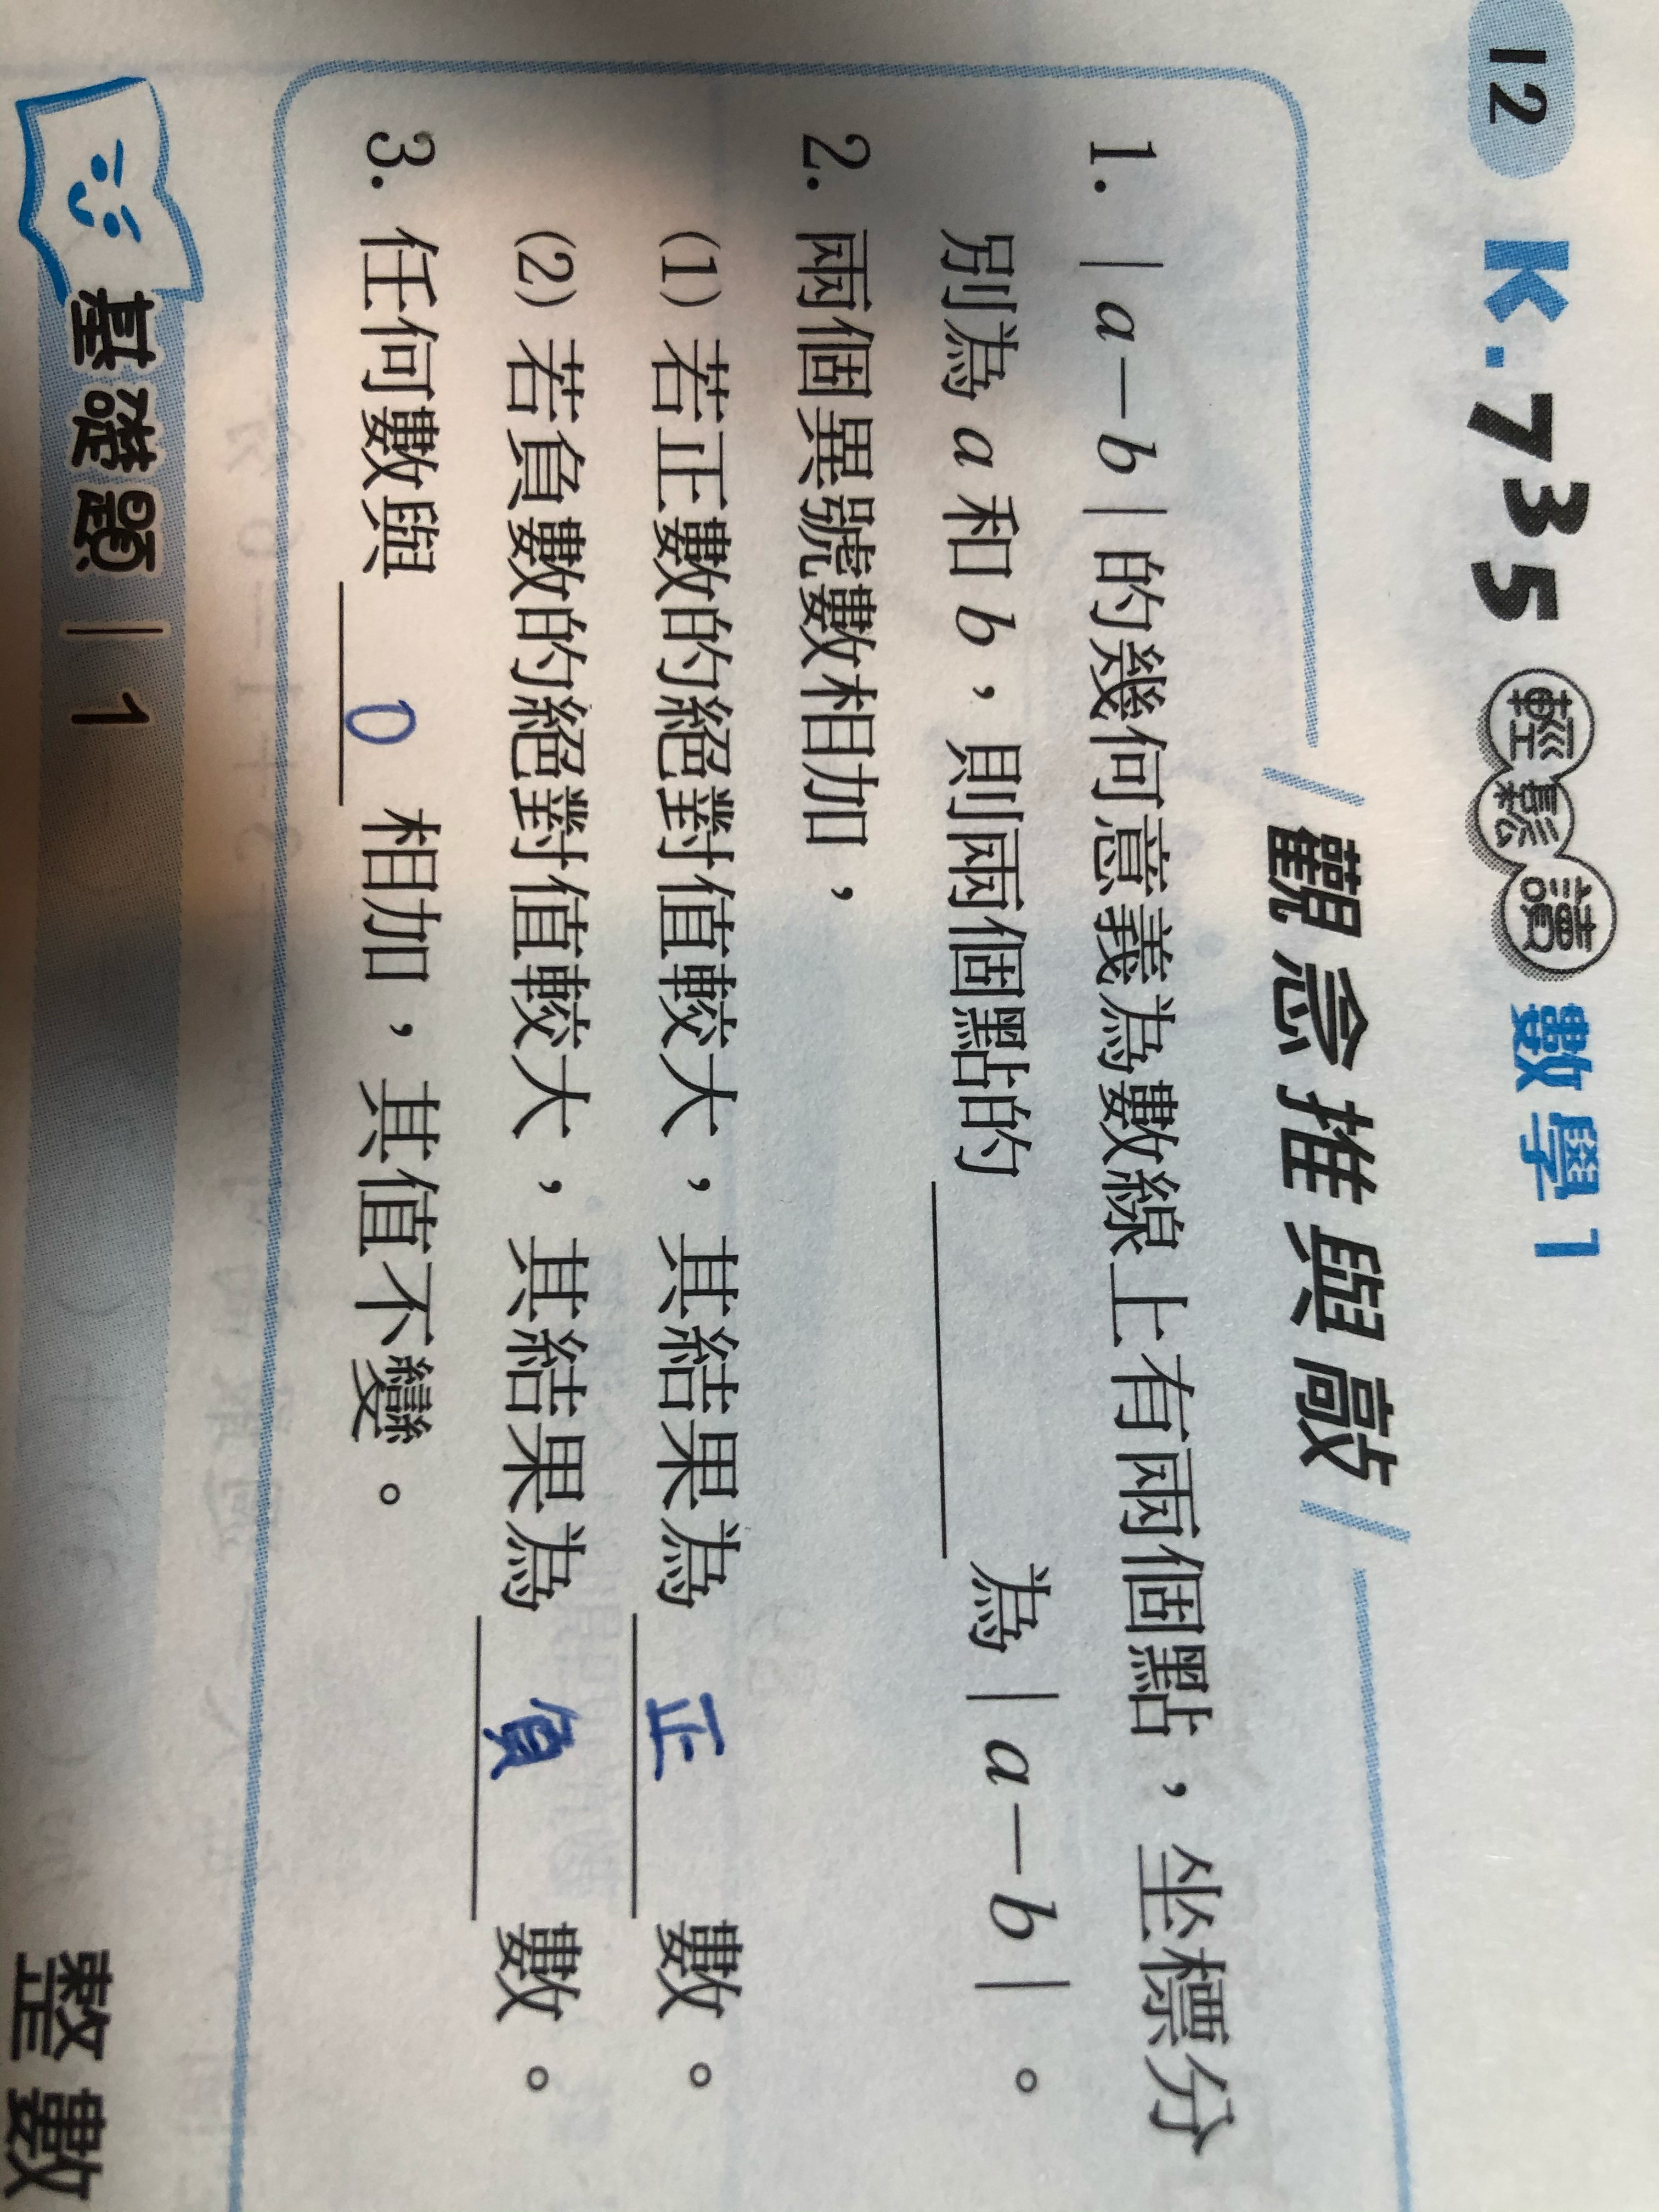 12 K.735 輕鬆讀 數學1
觀念推與敲
1. |a－b|的幾何意義為數線上有兩個點，坐標分
別為 a 和 b，則兩個點的＿＿＿＿為|a－b|。
2. 兩個異號數相加，
(1) 若正數的絕對值較大，其結果為 正 數。
(2) 若負數的絕對值較大，其結果為 負 數。
3. 任何數與 0 相加，其值不變。
基礎題 | 1
整數